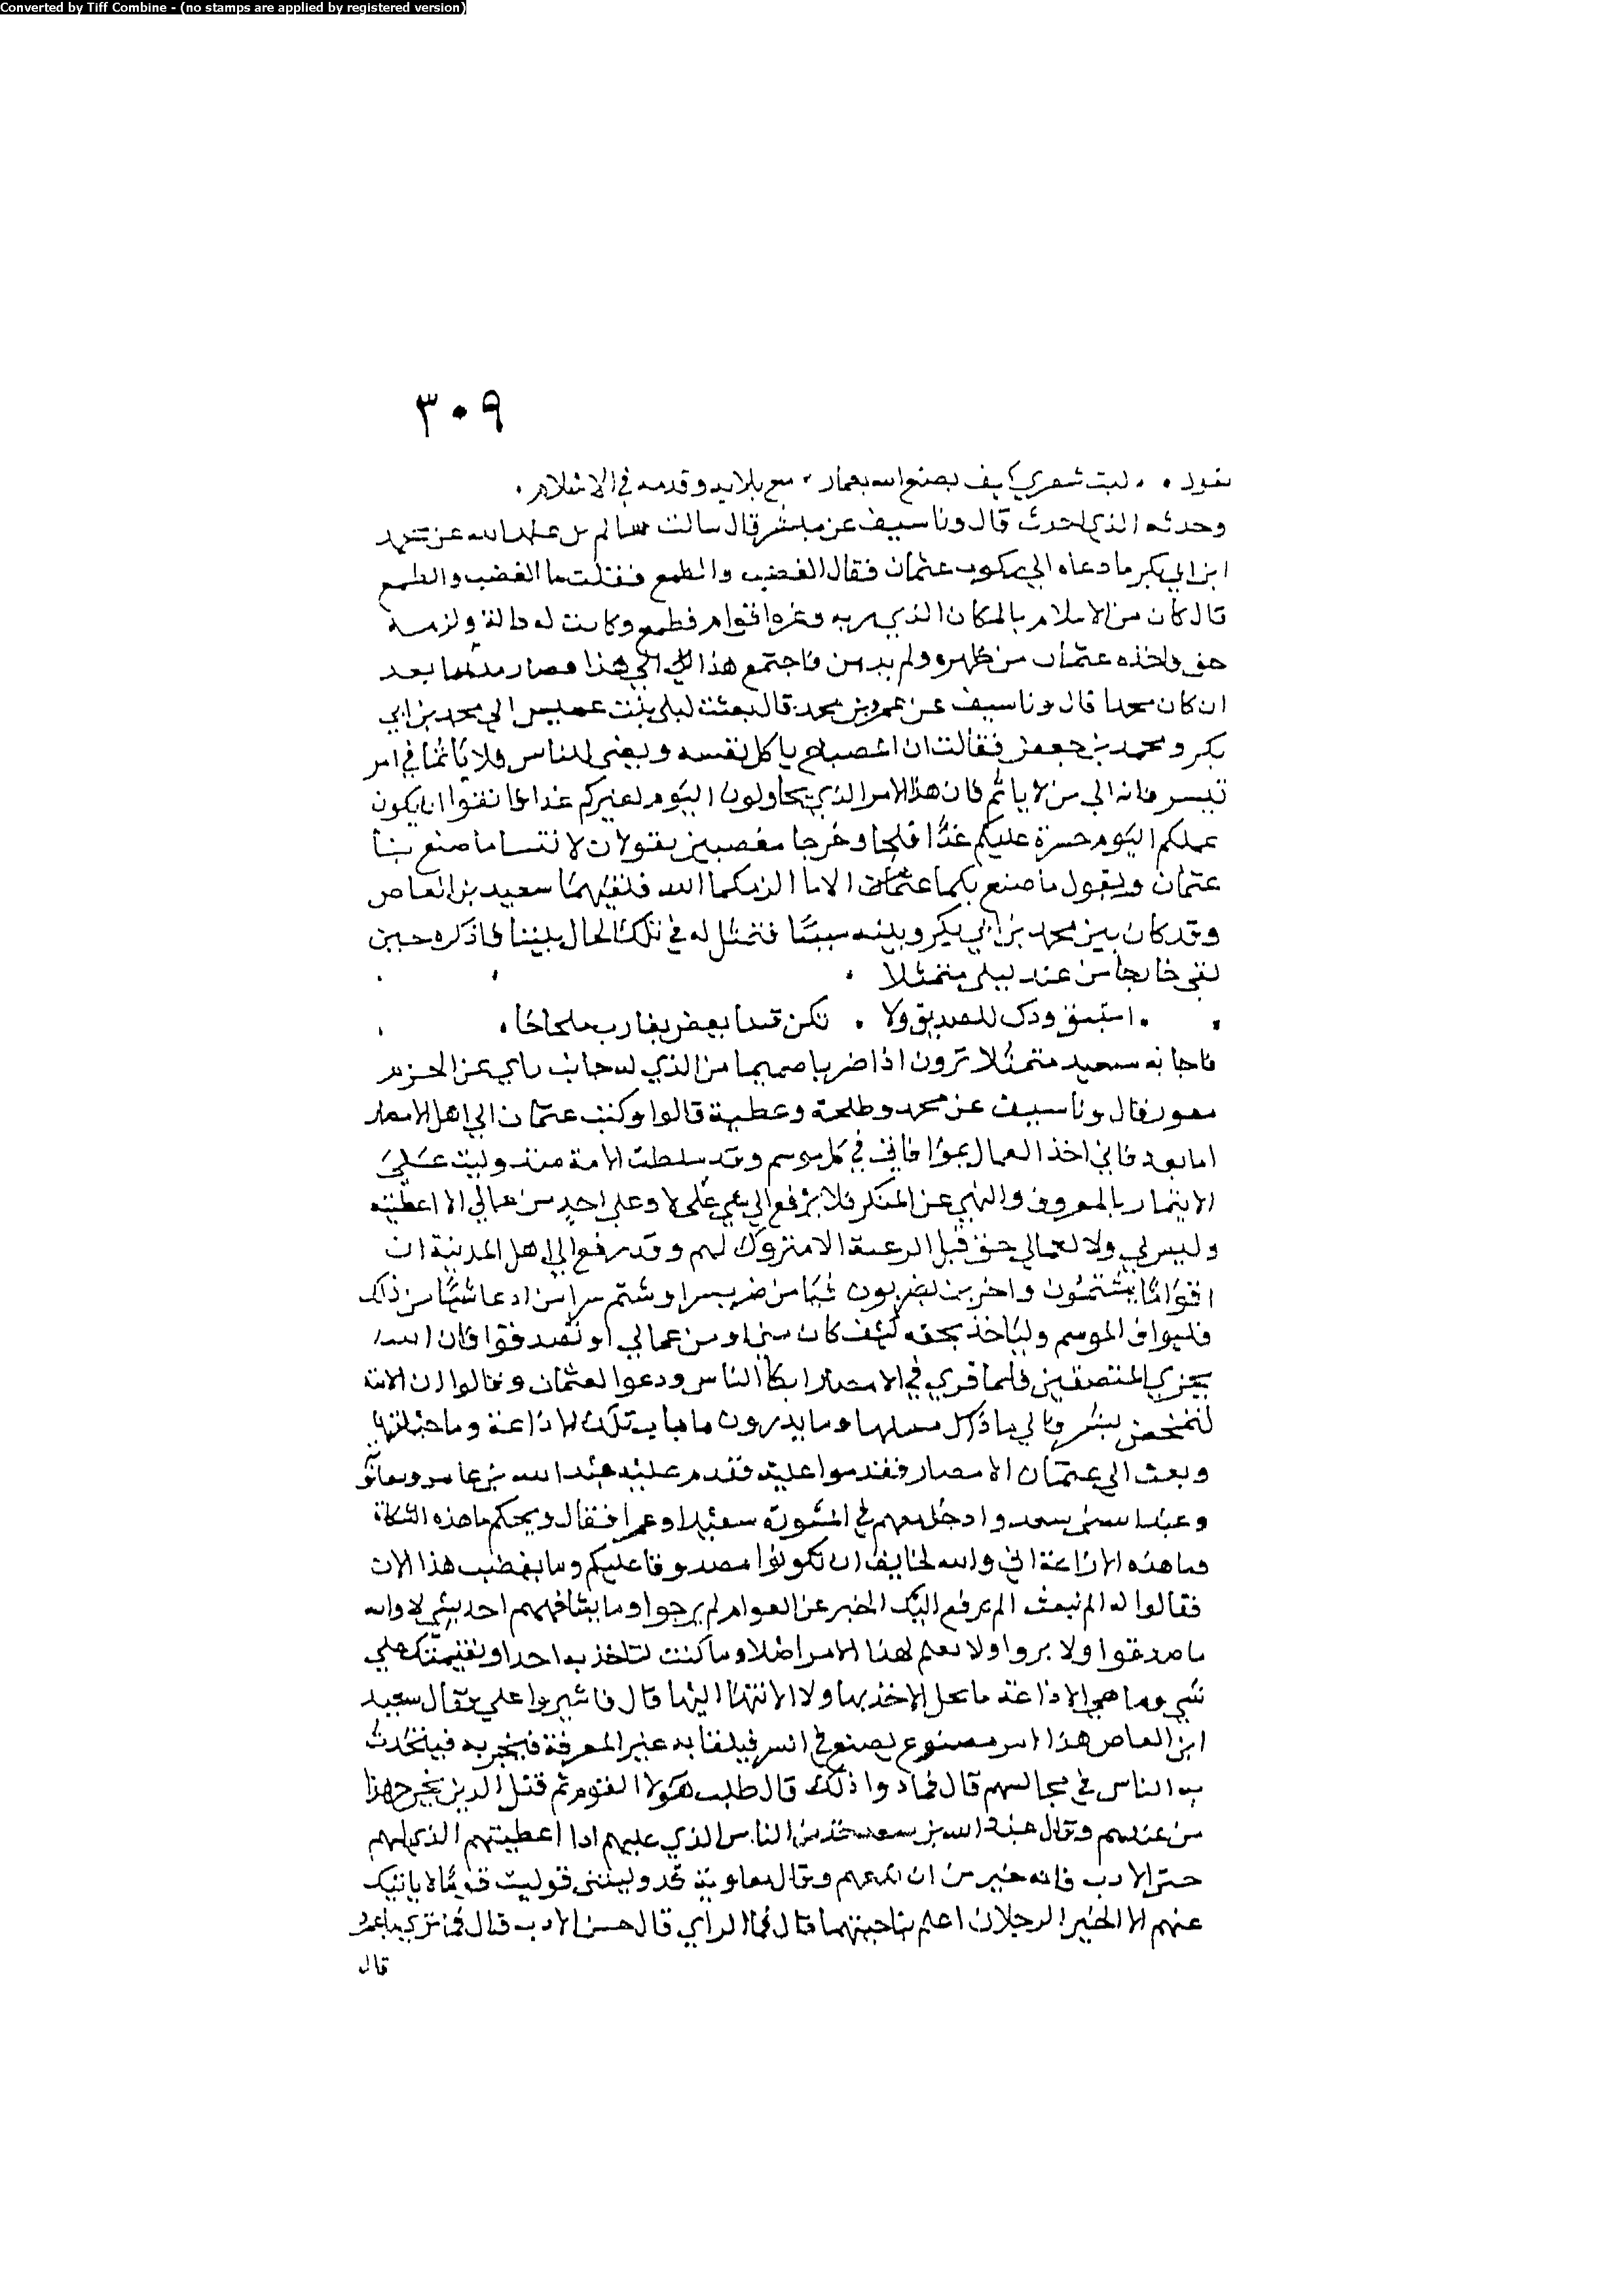 Converted by Tiff Combine - (no stamps are applied by registered version)
٣٠٩
ليت شعري كيف يصنع الله بعمار مع بلايه وقدمه في الاسلام
وحدثه الذي احدث قال ونا سيف عن مبشر قال سالت سالم بن عبد الله عن محمد
ابن ابي بكر ما دعاه الي ركوب عثمان فقال الغضب والطمع فقلت ما الغضب والطمع
قال كان من الاسلام بالمكان الذي هو به وغره اقوام فطمع وكانت له دالة ولزمه
حق فاخذه عثمان من ظهره ولم يدهن فاجتمع هذا الي هذا فصار مذمما بعد
ان كان محمدا قال ونا سيف عن عمرو بن محمد قال بعثت ليلي بنت عميس الي محمد بن ابي
بكر ومحمد بن جعفر فقالت ان المصباح ياكل نفسه ويضي للناس فلا تاثما في امر
تيسر فانه الي من لا ياثم فان هذا الامر الذي تحاولون اليوم لغيركم غدا فاتقوا ان يكون
عملكم اليوم حسرة عليكم غدا فلجا وخرجا مغضبين يقولان لا ننسا ما صنع بنا
عثمان ويقول ما صنع بكما عثمان الا ما الزمكما الله فلقيهما سعيد بن العاص
وقد كان بين محمد بن ابي بكر وبينه فتمثل له في تلك الحال بيتا فاذكره حين
لقي خارجا من عند ليلي متمثلا
استبق ودك للصديق ولا تكن قتبا يعض بغارب ملحاحا
فاجابه سعيد متمثلا ترون اذا ضربا صميما من الذي له جانب ناي عن الحزم
معور قال ونا سيف عن محمد وطلحة وعطية قالوا وكتب عثمان الي اهل الامصار
اما بعد فاني اخذ العمال بموافاتي في كل موسم وقد سلطت الامة منذ وليت علي
الايتمار بالمعروف والنهي عن المنكر فلا يرفع الي شي علي ولا وعلي احد من عمالي الا اعطيته
وليس لي ولا لعمالي حق قبل الرعية الا متروك لهم وقد رفع الي اهل المدينة ان
اقواما يشتمون واخرين يضربون فيا من ضرب سرا وشتم سرا من ادعا شيا من ذلك
فليواف الموسم ولياخذ بحقه كيف كان مني او من عمالي او تصدقوا فان الله
يجزي المتصدقين فلما قري في الامصار ابكا الناس ودعوا لعثمان وقالوا ان الامة
لتمخض بشر
وبعث الي عمال الامصار فقدموا عليه فقدم عليه عبد الله بن عامر ومعاوية
وعبد الله بن سعد وادخل معهم في المشورة سعيدا وعمرا فقال ويحكم ما هذه الشكاة
وما هذه الاذاعة اني والله لخايف ان تكونوا مصدوقا عليكم وما يعصب هذا الا بي
فقالوا له الم تبعث الم نرفع اليك الخبر عن العوام لم يرجعوا وما يشافههم احد بشي لا والله
ما صدقوا ولا بروا ولا نعلم لهذا الامر اصلا وما كنت لتاخذ به احدا ونقيمتك علي
شي وما هي الا اذاعة ما يحل الاخذ بها ولا الانتها اليها قال فاشيروا علي فقال سعيد
ابن العاص هذا امر مصنوع يصنع في السر فيلقا به غير المعرفة فيخبر به فيتحدث
به الناس في مجالسهم قال فما دوا ذلك قال طلب هولا القوم ثم قتل الذين يخرج هذا
من عندهم وقال عبد الله بن سعد خذ من الناس الذي عليهم اذا اعطيتهم الذي لهم
الادب فانه خير من ان تدعهم وقال معاوية قد وليتني فوليت قوما لا ياتيك
عنهم الا الخير الرجلان اعلم بناحيتهما قال فما الراي قال حسن الادب قال فما تري يا عمرو
قال